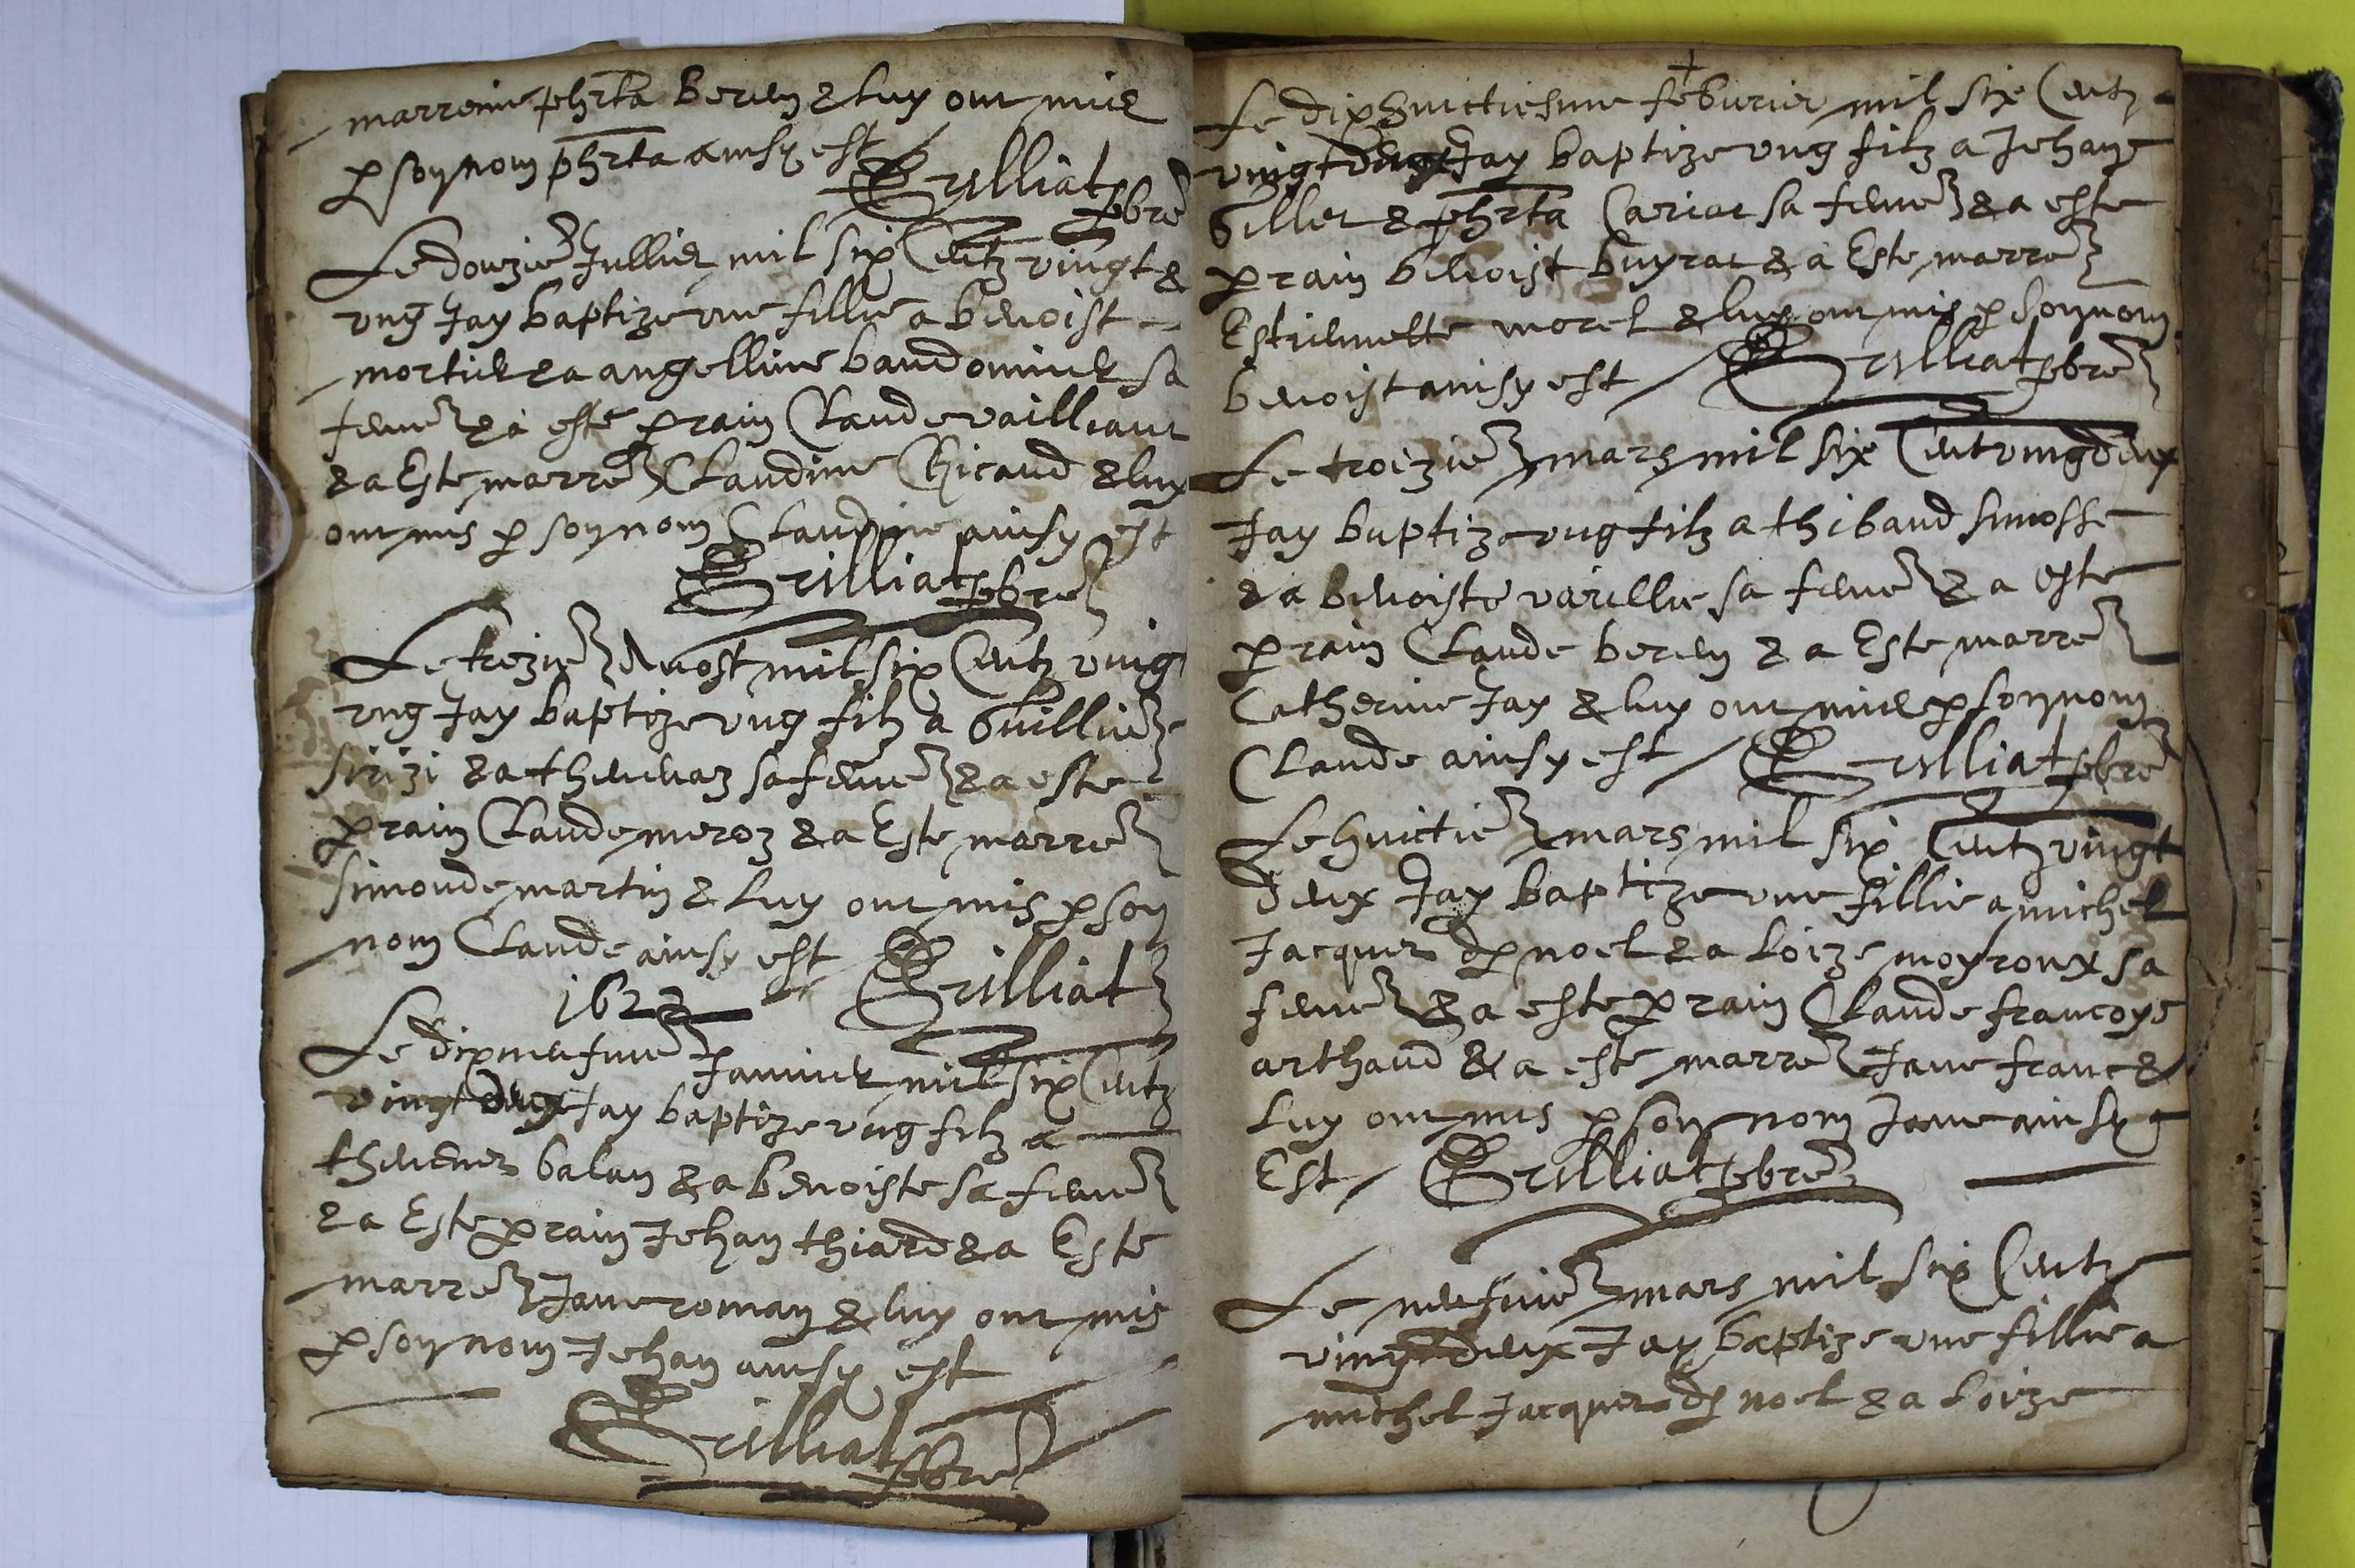 marreine phrta beren & luy ont mis
p son nom phrta ainsy est
Grilliat pbre
Le douzie Jullier mil six Centz vingt &
ung Jay baptize une fillie a benoist
mortier & a angelline baudominer sa
feme & a este prain Claude vailliant
& a Este marre Claudine Chicaud & luy
ont mis p son nom Claudine ainsy est
Grilliat pbre
Le trezie Auost mil six Centz ving
ung Jay baptize ung filz a Guillie
sirizi & a thevenaz sa feme & a este
prain Claude meroz & a Este marre
simonde martin & luy ont mis p son
nom Claude ainsy est
Grilliat
1622
Le dix neufme Janvier mil six Centz
vingt deux Jay baptize ung filz a
thevenet balan & a benoiste sa feme
& a Este prain Jehan thiard & a Este
marre Jane roman & luy ont mis
p son nom Jehan ainsy est
Grilliat pbre
Le dix huictiesme feburier mil six Centz
vingt deux Jay baptize ung filz a Jehan
Gillet & phrta Cariat sa feme & a este
prain benoist buyrat & a Este marre
Estiennette morel & luy ont mis p son nom
benoist ainsy est Grilliat pbre
Le troizie mars mil six Cent ving deux
Jay baptize ung filz a thibaud simosse
& a benoiste varillie sa feme & a este
prain Claude beren & a Este marre
Catherine Jay & luy ont mis p son nom
Claude ainsy est Grilliat pbre
Le huictie mars mil six Centz vingt
deux Jay baptize une fillie a michel
Jacquet dp noel & a Loize moyroux sa
feme & a este prain Claude francoys
arthaud & a este marre Jane franc &
luy ont mis p son nom Jane ainsy
Est Grilliat pbre
Le neufvie mars mil six Centz
vingt deux Jay baptize une fillie a
michel Jacquet dp noel & a Loize